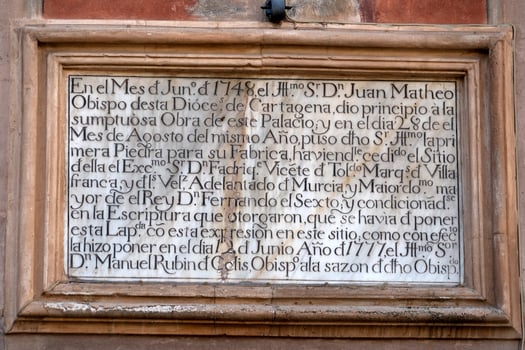 En el Mes đ Junº đ 1748, el Jltṃº Sʳ Dⁿ Juan Matheo
Obispo desta Dióceˢ de Cartagena, dio principio à la
sumptuosa Obra de este Palacio, y en el dia 28 de el
Mes de Agosto del mismo Año, puso đho Sʳ Jltṃº la pri
mera Piedra para su Fabrica, haviendˡᵉ cedidº el Sitio
della el Excᵐº Sʳ Dⁿ Fadriqᵉ Vicẽte đ Tolᵈº Marqˢ đ Villa
franca, y đ lˢ Velᶻ Adelantadº đ Murcia y Maiordᵒᵐº ma
yor de el Rey Dⁿ Fernando el Sexto, y condicionadˢᵉ
en la Escriptura que otorgaron, que se havia đ poner
esta Lapᵈᵃ cõ esta expresion en este sitio, como con efecᵗº
la hizo poner en el dia 12 đ Junio Año đ 1777, el Jltᵐº Sºʳ
Dⁿ Manuel Rubin đ Celis, Obispº a la sazon đ đho Obispᵈº